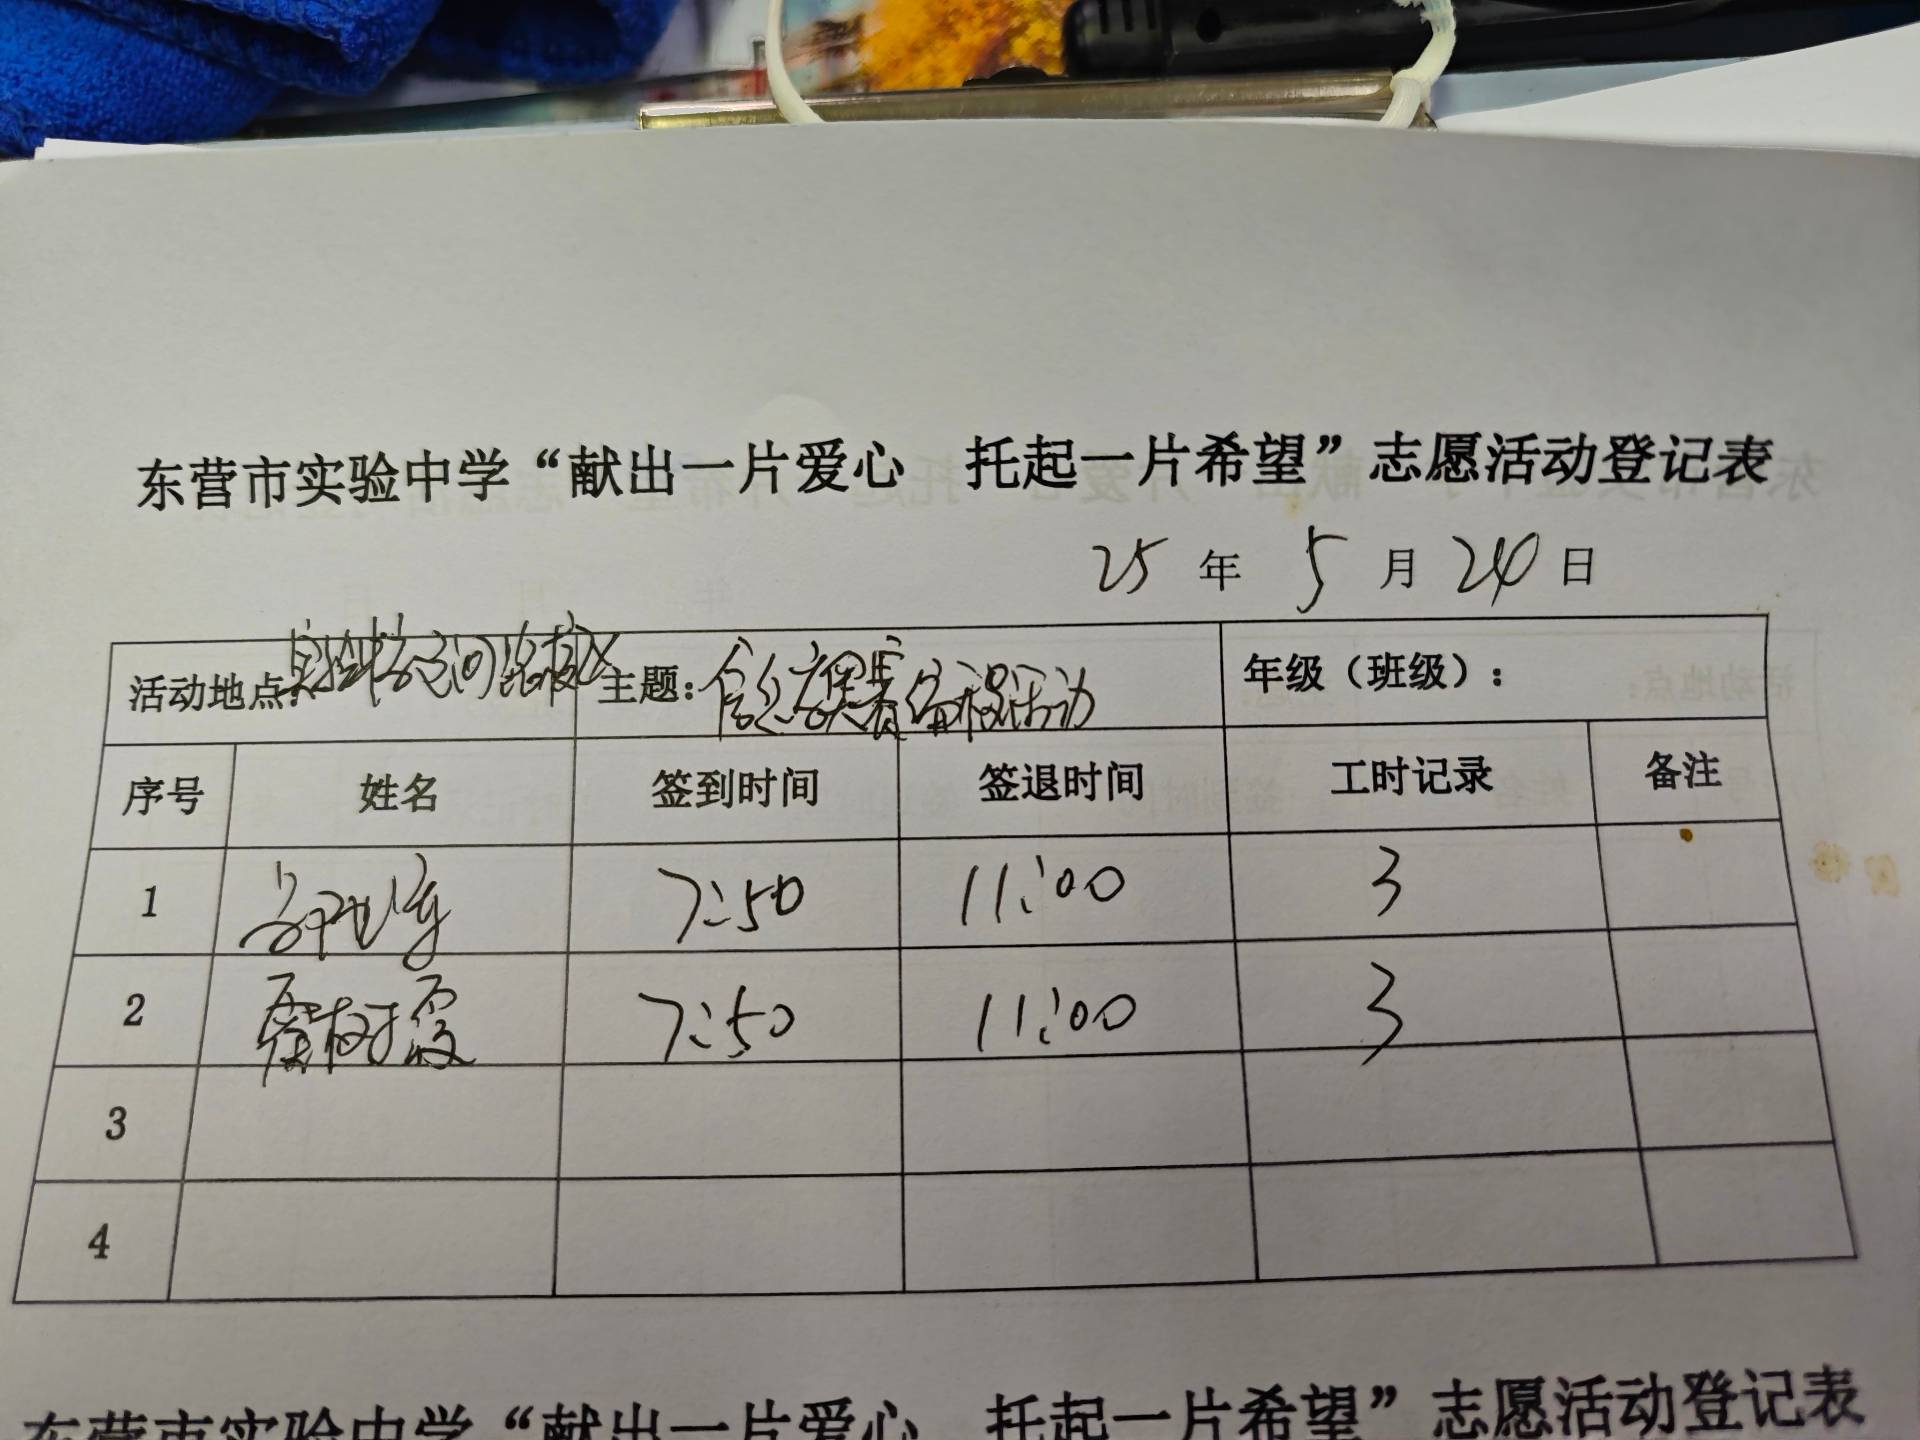 东营市实验中学“献出一片爱心 托起一片希望”志愿活动登记表
25 年 5 月 24 日
活动地点: 实验中学 主题: 信息奥赛编程活动 年级（班级）:
序号 姓名 签到时间 签退时间 工时记录 备注
1 7:50 11:00 3
2 7:50 11:00 3
3
4
东营市实验中学“献出一片爱心 托起一片希望”志愿活动登记表